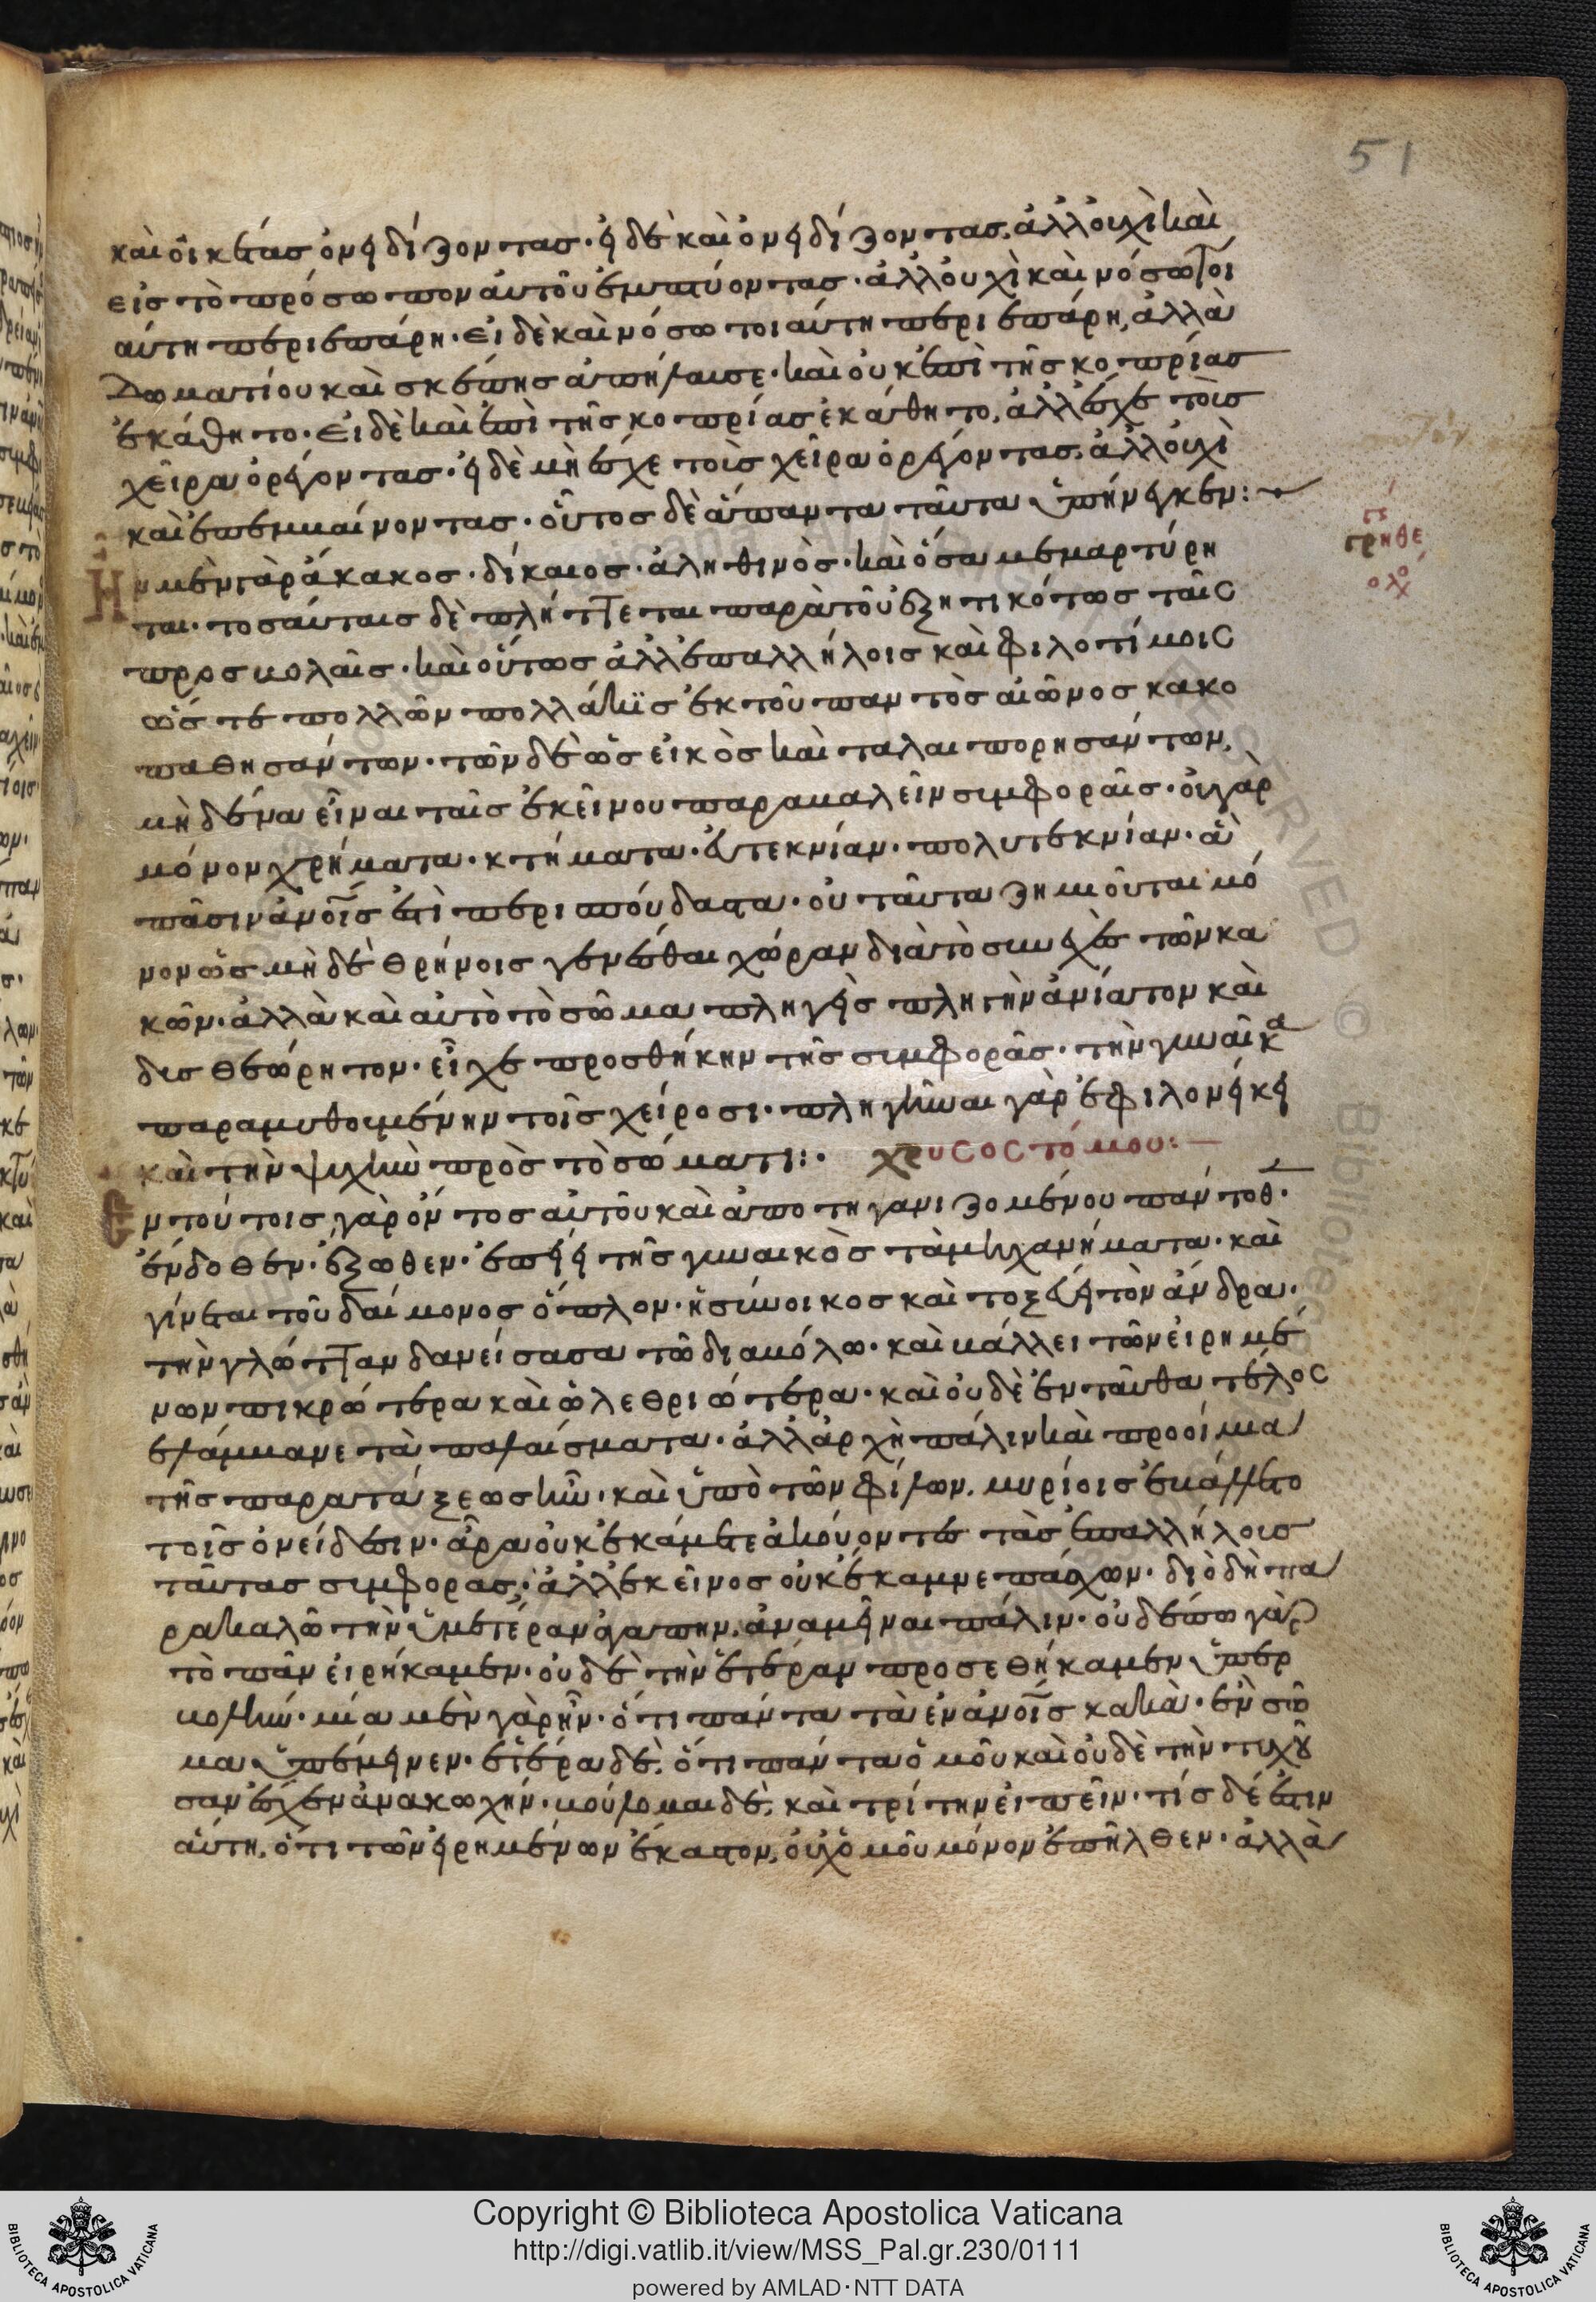 51
καὶ οἰκέτας ὀνειδίζοντας· εἰ δὲ καὶ ὀνειδίζοντας, ἀλλ' οὐχὶ καὶ
εἰς τὸ πρόσωπον αὐτοῦ ἐμπτύοντας· ἀλλ' οὐχὶ καὶ νόσω τοι
αύτη περιεπάρη· εἰ δὲ καὶ νόσω τοιαύτη περιεπάρη, ἀλλὰ
δωματίου καὶ σκέπης ἀπήλαυσε· καὶ οὐκ ἐπὶ τῆς κοπρίας
ἐκάθητο· εἰ δὲ καὶ ἐπὶ τῆς κοπρίας ἐκάθητο, ἀλλ' ἔσχε τοὺς
χεῖρα ὀρέγοντας· εἰ δὲ μὴ ἔσχε τοὺς χεῖρα ὀρέγοντας, ἀλλ' οὐχὶ
καὶ ἐπεμβαίνοντας· οὗτος δὲ ἅπαντα ταῦτα ὑπήνεγκεν:
Ἦν μὲν γὰρ ἄκακος· δίκαιος· ἀληθινὸς· καὶ ὅσα μεμαρτύρη
ται· τοσαύταις δὲ πλήττεται παρὰ τοῦ ἐξητικότως ταῖς
προσβολαῖς· καὶ οὕτως ἀλλεπαλλήλοις καὶ φιλοτίμοις
ὥς τε πολλῶν πολλάκις ἐκ τοῦ παντὸς αἰῶνος κακο
παθησάντων· τῶν δὲ ὡς εἰκὸς καὶ ταλαιπωρησάντων,
μὴ δένα εἶναι ταῖς ἐκείνου παραβαλεῖν συμφοραῖς· οὐ γὰρ
μόνον χρήματα· κτήματα· εὐτεκνίαν· πολυτεκνίαν· ἃ
πᾶσιν ἀνοῖς ἐστὶ περισπούδαστα· οὐ ταῦτα ζημιοῦται μό
νον ὡς μὴ δὲ θρήνοις γενέσθαι χώραν διὰ τὸ συνεχὲς τῶν κα
κῶν· ἀλλὰ καὶ αὐτὸ τὸ σῶμα πληγεὶς πληγὴν ἀνίατον καὶ
δυσθεώρητον· εἶχε προσθήκην τῆς συμφορᾶς· τὴν γυναῖκα
παραμυθουμένην τοῖς χείροσι· πληγῆναι γὰρ ἐφιλονείκει
καὶ τὴν ψυχὴν πρὸς τὸ σώματι:· χρυσοστόμου:
Ἐν τούτοις γὰρ ὄντος αὐτοῦ καὶ ἀποτηγανιζομένου παντοθ·
ἔνδοθεν· ἔξωθεν· ἐπήει τῆς γυναικὸς τὰ μηχανήματα· καὶ
γίνεται τοῦ δαίμονος ὅπλον· ἡ σύνοικος καὶ τοξεύει τὸν ἄνδρα·
τὴν γλῶτταν δανείσασα τῶ διαβόλω· καὶ βάλλει τῶν εἰρημέ
νων πικρότερα καὶ ὀλεθριώτερα· καὶ οὐδὲ ἐνταῦθα τέλος
ἐλάμβανε τὰ παλαίσματα· ἀλλ' ἀρχὴ πάλιν καὶ προοίμια
τῆς παρατάξεως ἦν· καὶ ὑπὸ τῶν φίλων, μυρίοις ἐβάλλετο
τοῖς ὀνείδεσιν· ἆρα οὐκ ἐκάμετε ἀκούοντες τὰς ἐπαλλήλοις
ταύτας συμφορας; ἀλλ' ἐκεῖνος οὐκ ἔκαμνε πάσχων· διὸ δὴ πα
ρακαλῶ τὴν ὑμετέραν ἀγάπην, ἀναμεῖναι πάλιν· οὐδέπω γὰρ
τὸ πᾶν εἰρήκαμεν· οὐδὲ τὴν ἑτέραν προσεθήκαμεν ὑπερ
βολήν· μία μὲν γὰρ ἦν· ὅτι πάντα τὰ ἐν ἀνοῖς κακὰ· ἓν σῶ
μα ὑπέμεινεν· ἑτέρα δὲ, ὅτι πάντα ὁμοῦ καὶ οὐδὲ τὴν τυχοῦ
σαν ἔσχεν ἀνακωχήν· βούλομαι δὲ, καὶ τρίτην εἰπεῖν· τίς δέ ἐστιν
αὕτη, ὅτι τῶν εἰρημένων ἕκαστον, οὐχ ὁμοῦ μόνον ἐπῆλθεν· ἀλλὰ
Copyright © Biblioteca Apostolica Vaticana
http://digi.vatlib.it/view/MSS_Pal.gr.230/0111
powered by AMLAD·NTT DATA